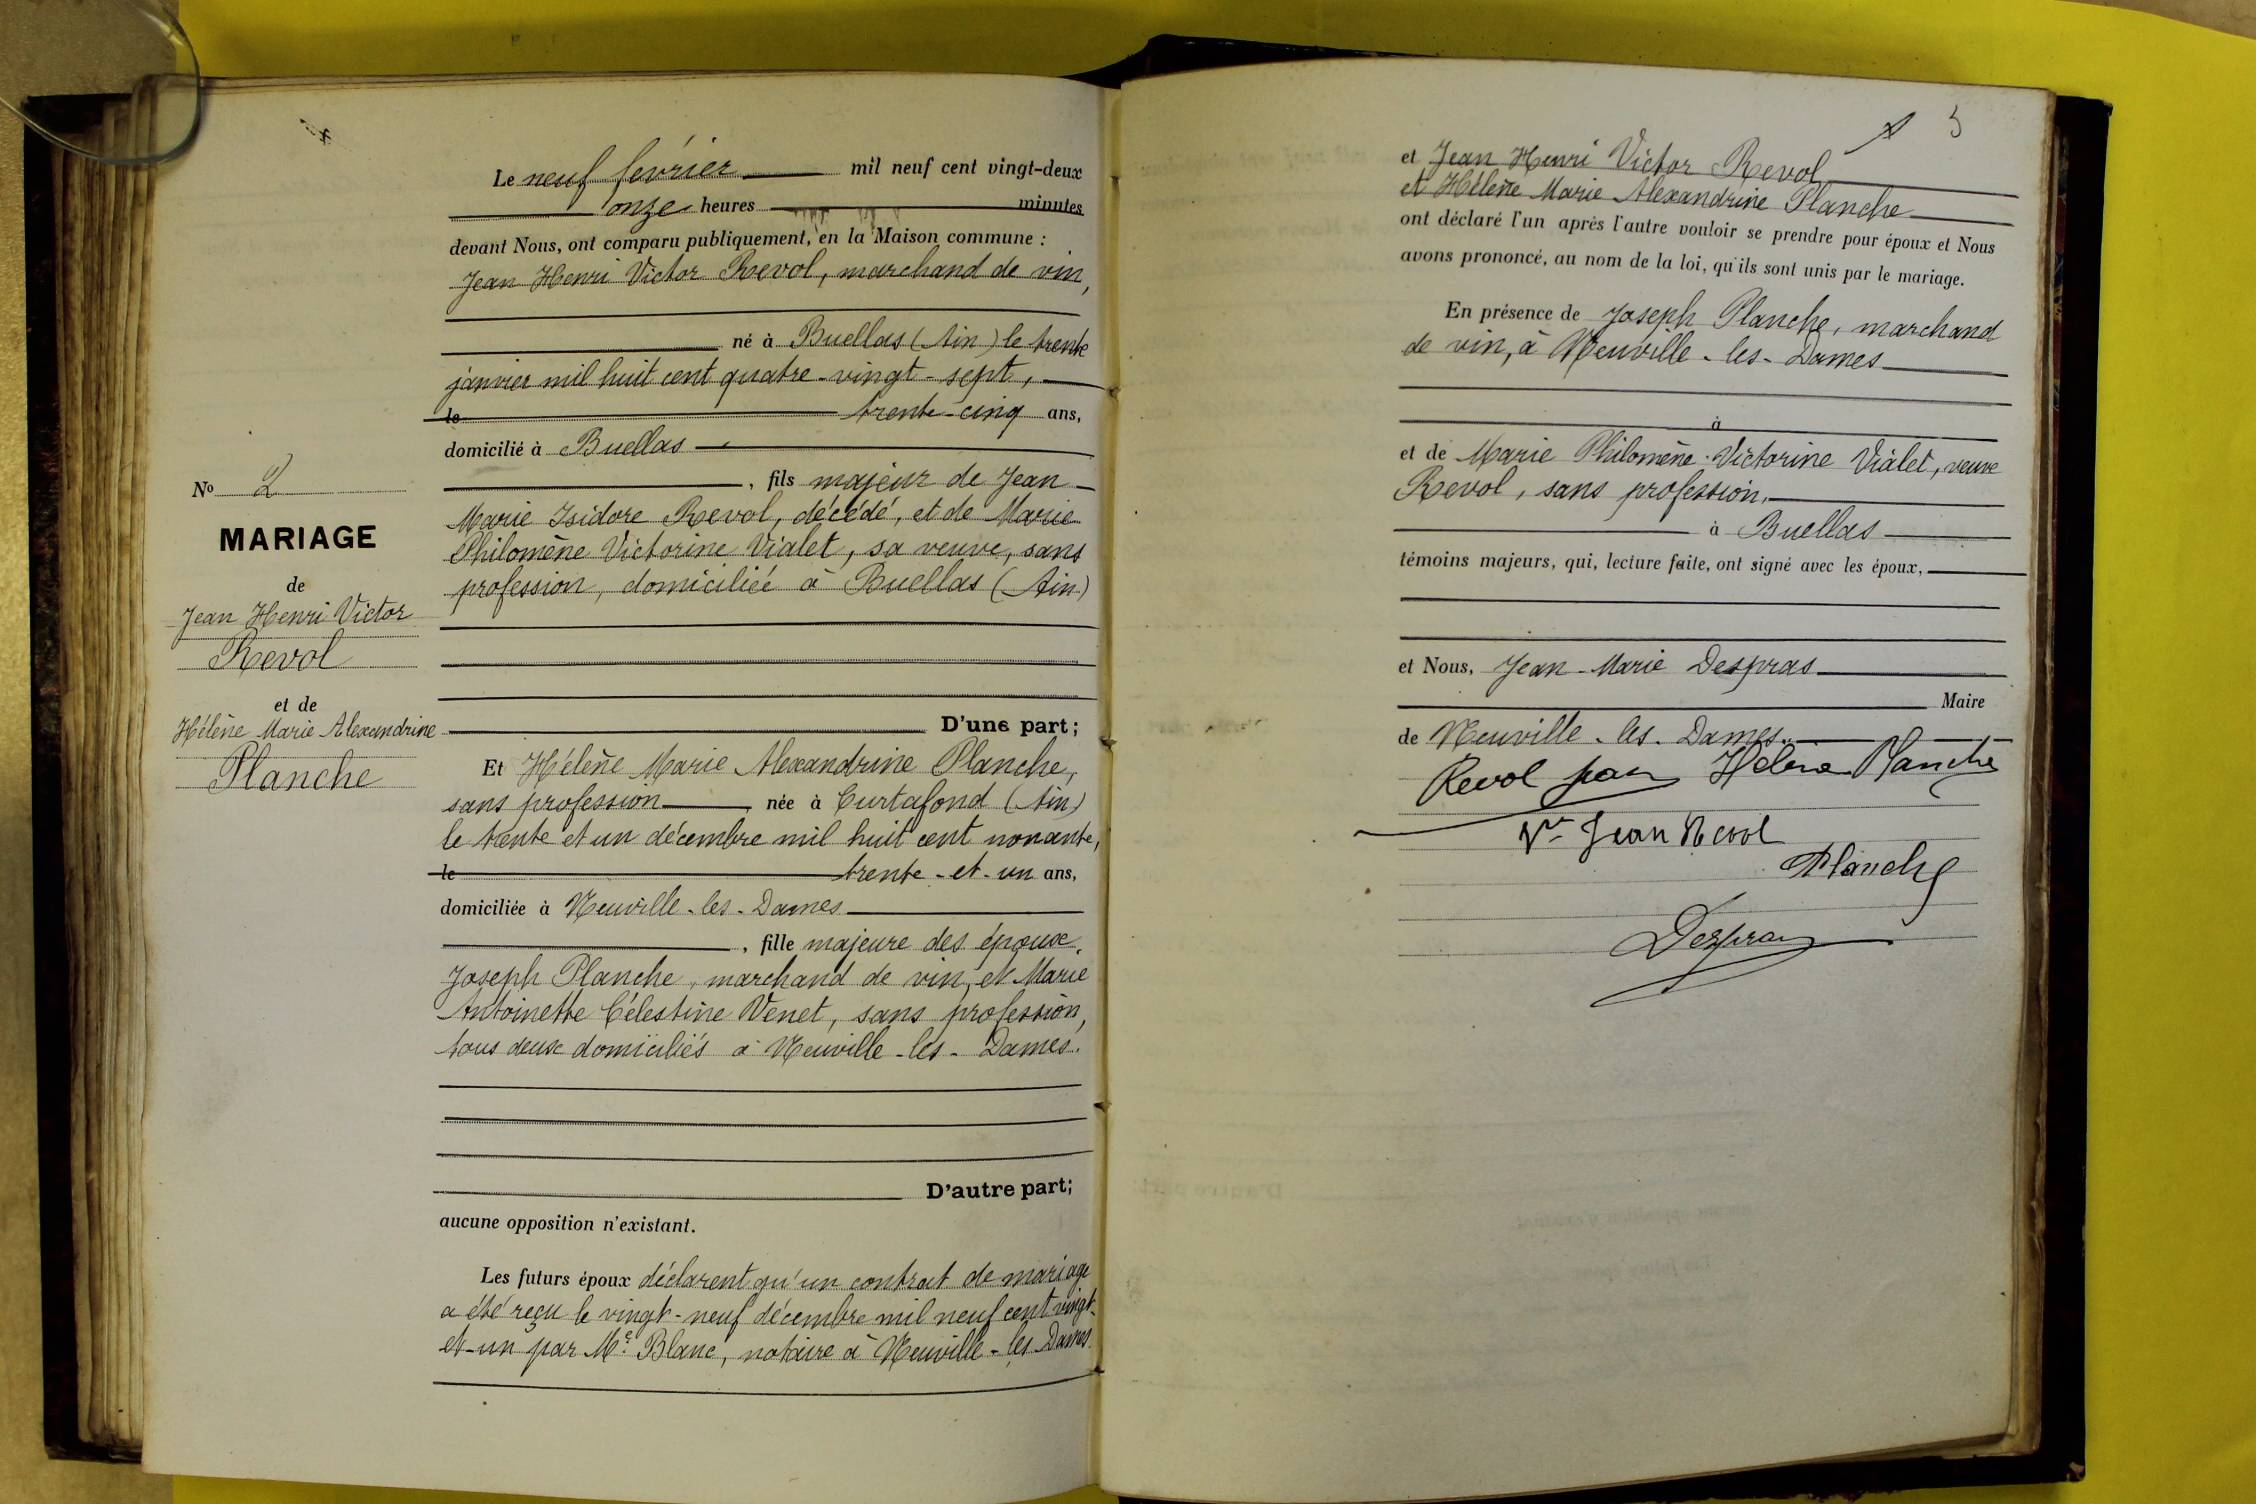 Le neuf février mil neuf cent vingt-deux
onze heures minutes
devant Nous, ont comparu publiquement, en la Maison commune :
Jean Henri Victor Revol, marchand de vin,
né à Buellas (Ain) le trente
janvier mil huit cent quatre-vingt-sept,
le trente-cinq ans,
domicilié à Buellas
, fils majeur de Jean
Marie Isidore Revol, décédé, et de Marie
Philomène Victorine Vialet, sa veuve, sans
profession, domiciliée à Buellas (Ain)
No 2
MARIAGE
de
Jean Henri Victor
Revol
et de
Hélène Marie Alexandrine
Planche
D'une part;
Et Hélène Marie Alexandrine Planche,
sans profession, née à Curtafond (Ain)
le trente et un décembre mil huit cent nonante,
le trente-et-un ans,
domiciliée à Neuville-les-Dames
, fille majeure des époux,
Joseph Planche, marchand de vin, et Marie
Antoinette Célestine Venet, sans profession,
tous deux domiciliés à Neuville-les-Dames.
D'autre part;
aucune opposition n'existant.
Les futurs époux déclarent qu'un contrat de mariage
a été reçu le vingt-neuf décembre mil neuf cent vingt-
et-un par Me Blanc, notaire à Neuville-les-Dames.
5
et Jean Henri Victor Revol
et Hélène Marie Alexandrine Planche
ont déclaré l'un après l'autre vouloir se prendre pour époux et Nous
avons prononcé, au nom de la loi, qu'ils sont unis par le mariage.
En présence de Joseph Planche, marchand
de vin, à Neuville-les-Dames
à
et de Marie Philomène Victorine Vialet, veuve
Revol, sans profession,
à Buellas
témoins majeurs, qui, lecture faite, ont signé avec les époux,
et Nous, Jean-Marie Despras
Maire
de Neuville-les-Dames.
Revol Jean Hélène Planche
Vve Jean Revol
Planche
Despras